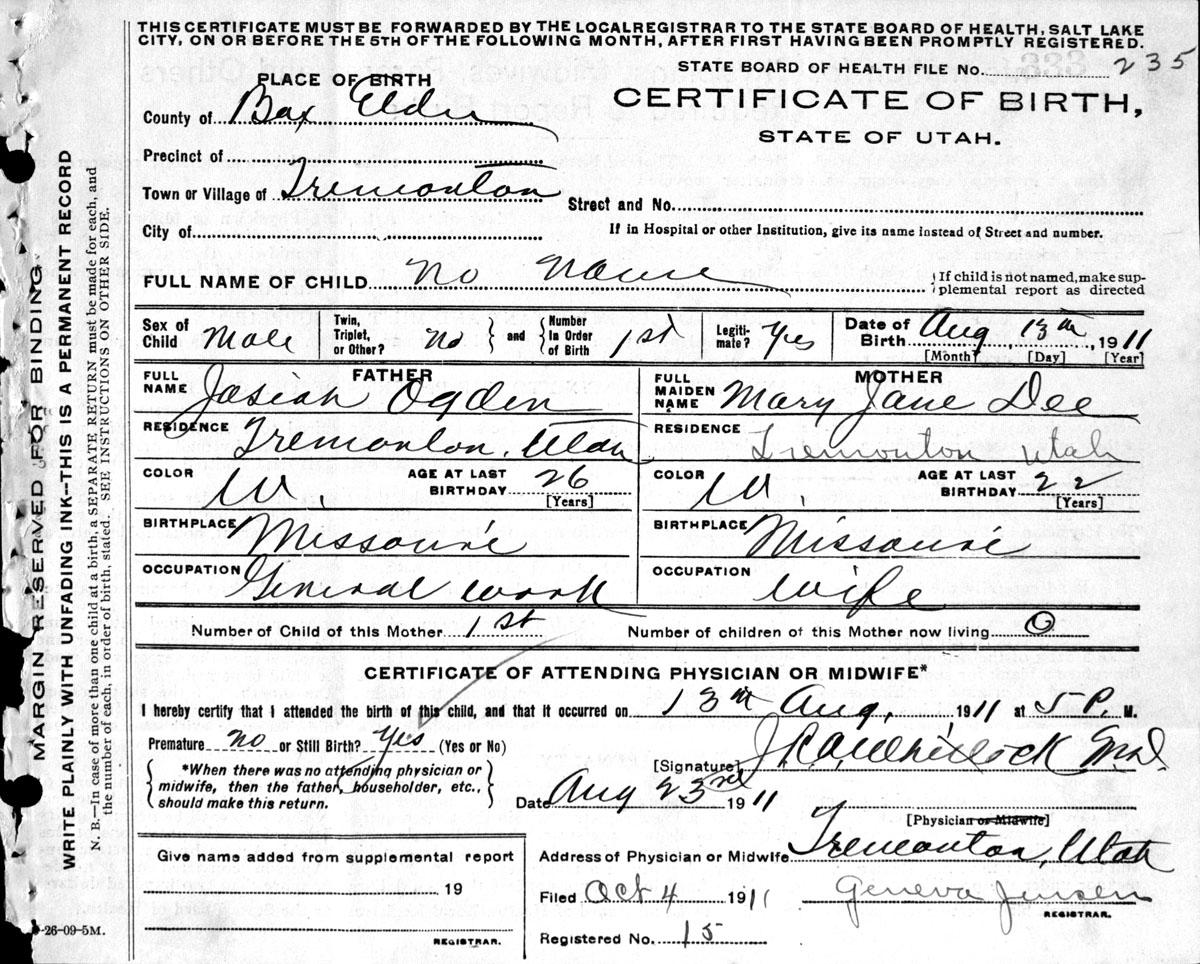 THIS CERTIFICATE MUST BE FORWARDED BY THE LOCAL REGISTRAR TO THE STATE BOARD OF HEALTH, SALT LAKE
CITY, ON OR BEFORE THE 5TH OF THE FOLLOWING MONTH, AFTER FIRST HAVING BEEN PROMPTLY REGISTERED.
STATE BOARD OF HEALTH FILE No. 235
PLACE OF BIRTH
CERTIFICATE OF BIRTH,
STATE OF UTAH.
County of Box Elder
Precinct of
Town or Village of Tremonton
Street and No.
City of
If in Hospital or other Institution, give its name instead of Street and number.
FULL NAME OF CHILD No Name
If child is not named, make sup-
plemental report as directed
Sex of Child Male Twin, Triplet, or Other? No and Number In Order of Birth 1st Legiti-mate? Yes Date of Birth Aug 13th, 1911
[Month] [Day] [Year]
FATHER MOTHER
FULL NAME Josiah Ogden FULL MAIDEN NAME Mary Jane Dee
RESIDENCE Tremonton, Utah RESIDENCE Tremonton Utah
COLOR W. AGE AT LAST BIRTHDAY 26 [Years] COLOR W. AGE AT LAST BIRTHDAY 22 [Years]
BIRTHPLACE Missouri BIRTHPLACE Missouri
OCCUPATION General work OCCUPATION wife
Number of Child of this Mother 1st Number of children of this Mother now living 0
CERTIFICATE OF ATTENDING PHYSICIAN OR MIDWIFE*
I hereby certify that I attended the birth of this child, and that it occurred on 13th Aug, 1911 at 5 P. M.
Premature no or Still Birth? Yes (Yes or No)
[Signature] Whitlock M.D.
*When there was no attending physician or
midwife, then the father, householder, etc.,
should make this return.
Date Aug 23rd 1911
[Physician or Midwife]
Give name added from supplemental report
Address of Physician or Midwife Tremonton, Utah
19
Filed Oct 4 1911 Geneva Jensen
REGISTRAR.
Registered No. 15
REGISTRAR.
-26-09-5M.
MARGIN RESERVED FOR BINDING
WRITE PLAINLY WITH UNFADING INK--THIS IS A PERMANENT RECORD
N. B.—In case of more than one child at a birth, a SEPARATE RETURN must be made for each, and
the number of each, in order of birth, stated. SEE INSTRUCTIONS ON OTHER SIDE.